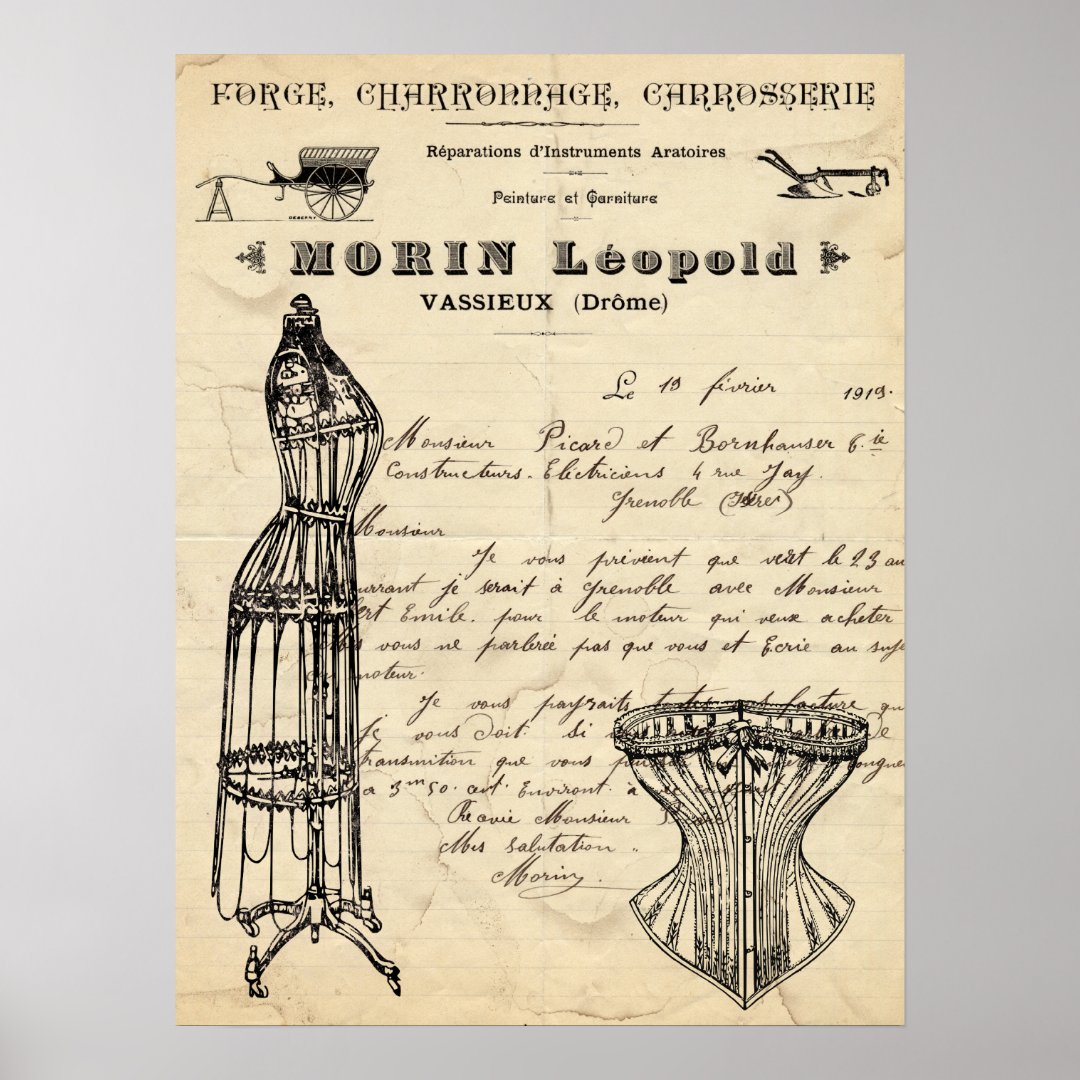 FORGE, CHARRONNAGE, CARROSSERIE
Réparations d'Instruments Aratoires
Peinture et Garniture
DEBERNY
MORIN Léopold
VASSIEUX (Drôme)
Le 19 février 1919.
Monsieur Picard et Bornhauser Cie
Constructeurs. Electriciens 4 rue Jay.
Grenoble (Isère)
Monsieur
Je vous prévient que vert le 23 au
urrant je serait à Grenoble avec Monsieur
ert Emile. pour le moteur qui veux acheter
vous ne parlereé pas que vous et Ecrie au suje
moteur.
Je vous payraits facture qu
Je vous doit. si de
transmition que vous longue
a 3m50. Environt. à
Monsieur
Mes salutation
Morin